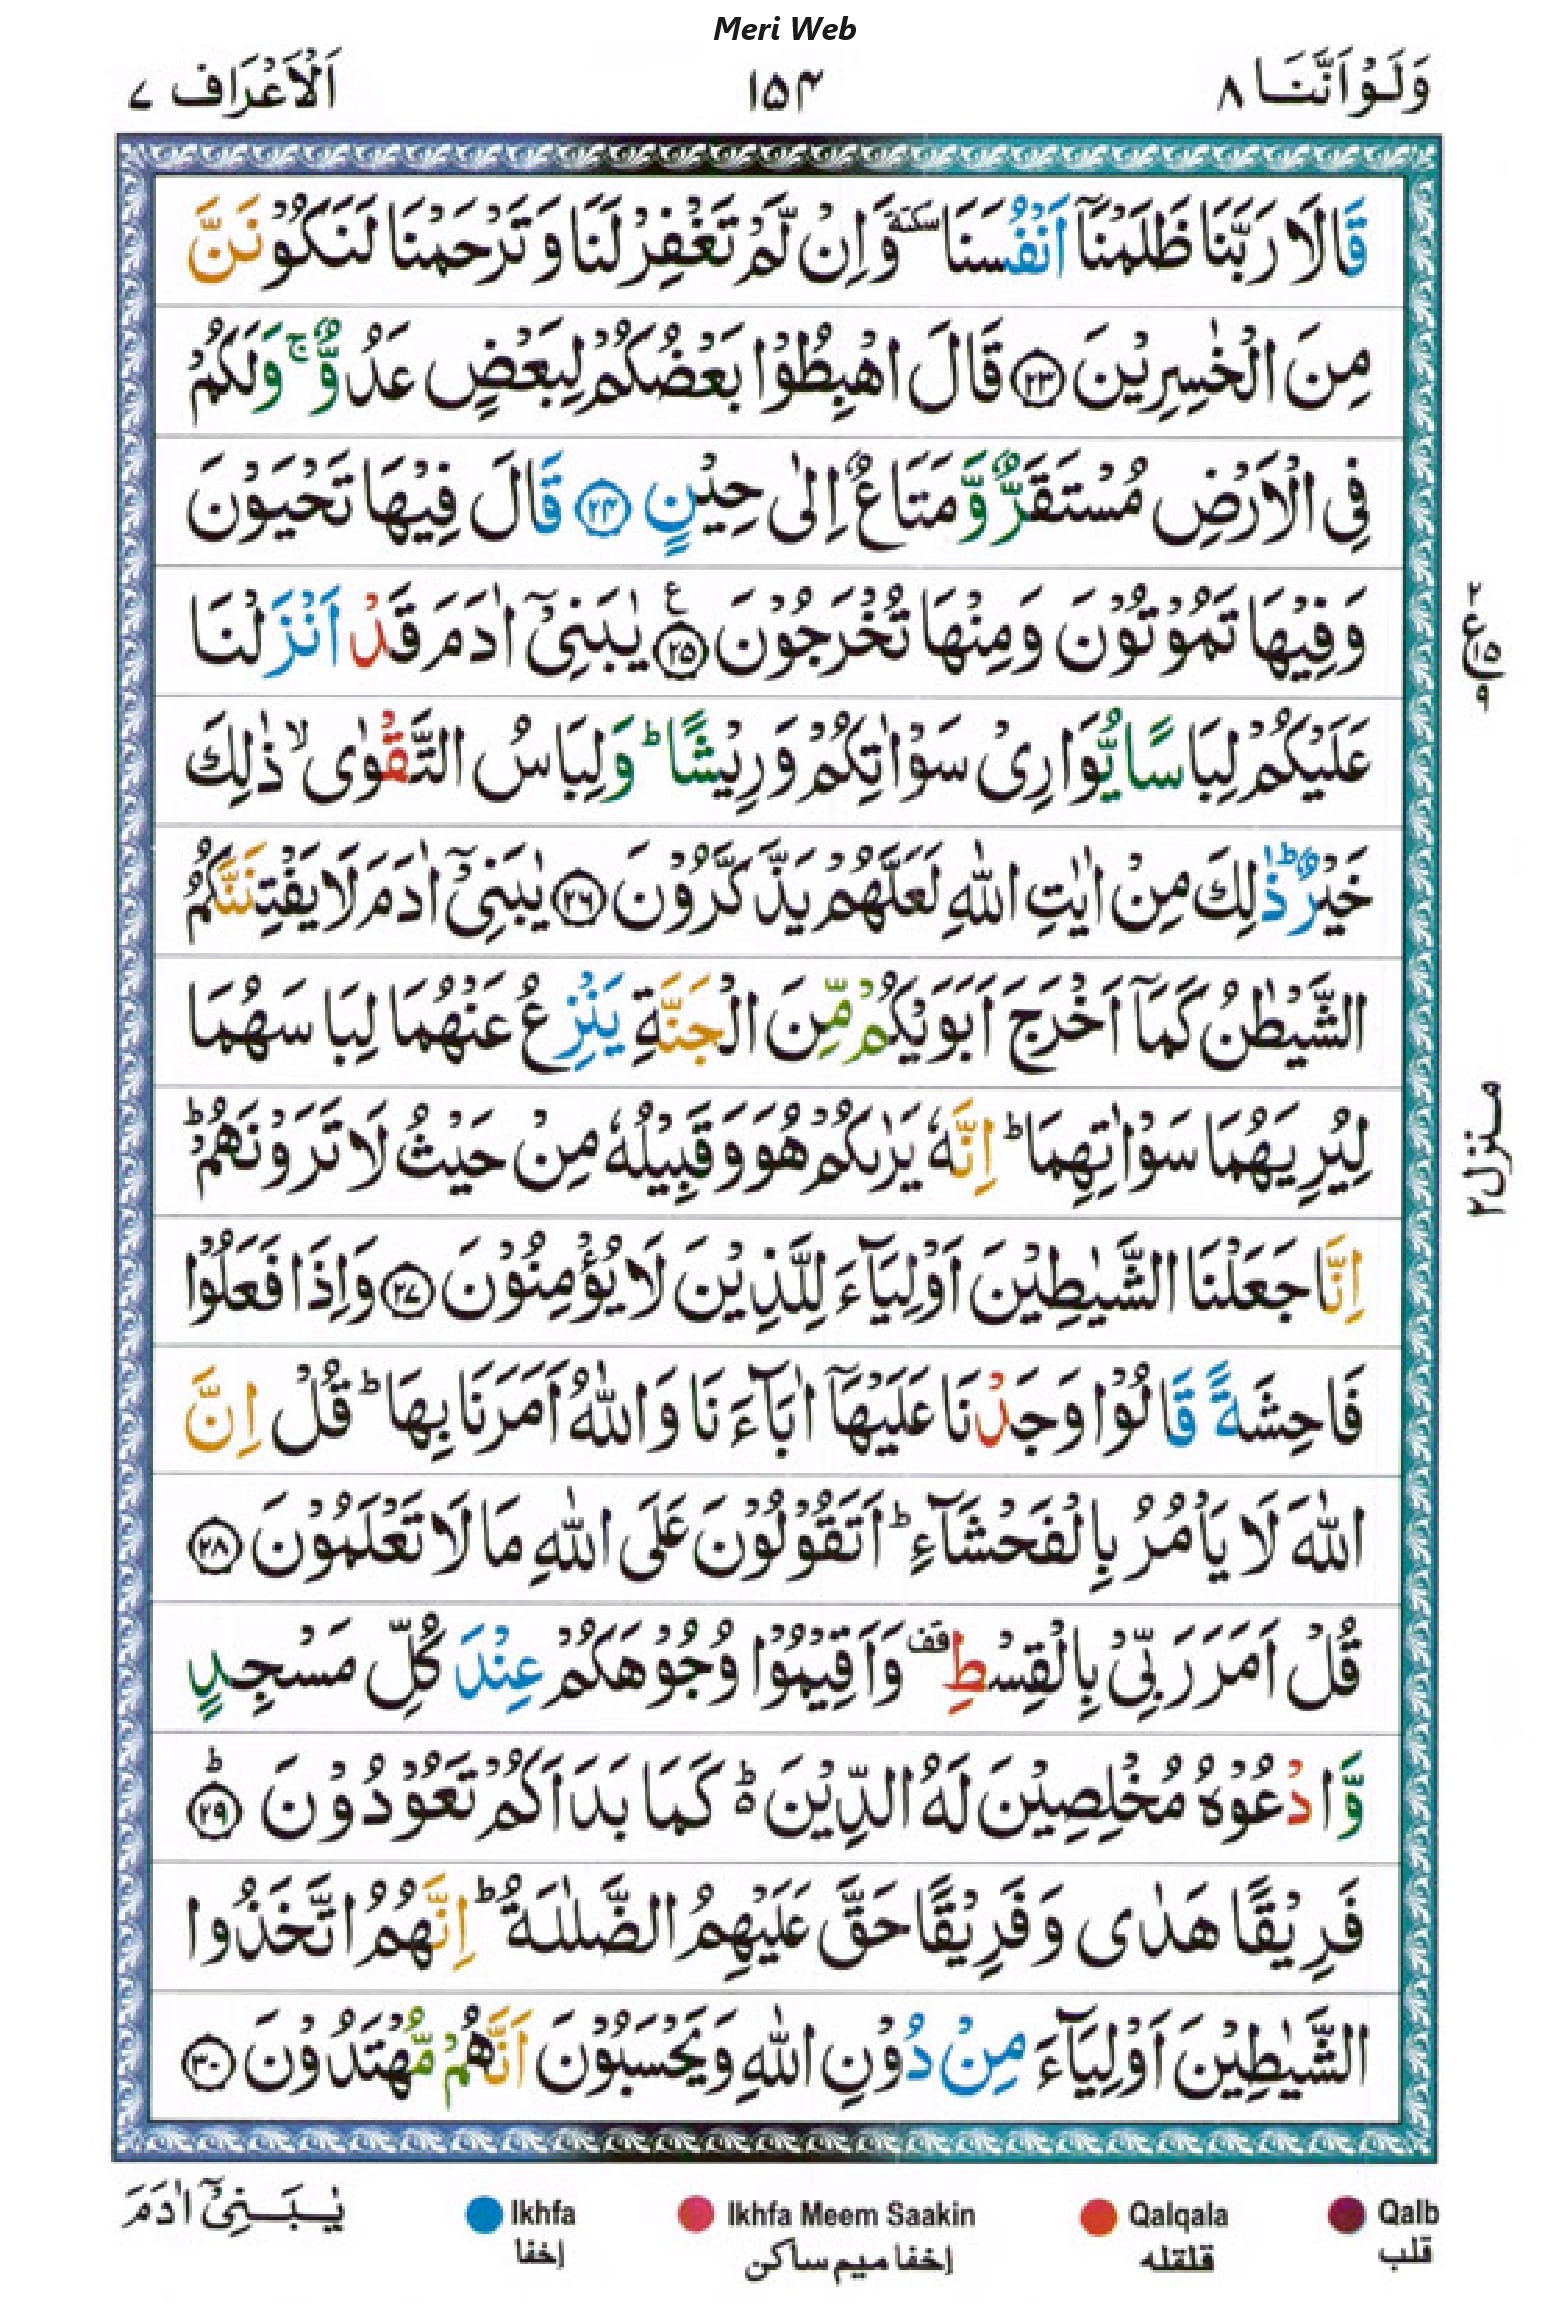 Meri Web
وَلَوْاَنَّنَا ٨ ١٥٤ اَلْاَعْرَاف ٧
قَالَا رَبَّنَا ظَلَمْنَآ اَنْفُسَنَا سكتة وَاِنْ لَّمْ تَغْفِرْ لَنَا وَ تَرْحَمْنَا لَنَكُوْنَنَّ
مِنَ الْخٰسِرِيْنَ ﴿٢٣﴾ قَالَ اهْبِطُوْا بَعْضُكُمْ لِبَعْضٍ عَدُوٌّ ۚ وَلَكُمْ
فِى الْاَرْضِ مُسْتَقَرٌّ وَّ مَتَاعٌ اِلٰى حِيْنٍ ﴿٢٤﴾ قَالَ فِيْهَا تَحْيَوْنَ
وَفِيْهَا تَمُوْتُوْنَ وَمِنْهَا تُخْرَجُوْنَ ﴿٢٥﴾ ع يٰبَنِىْٓ اٰدَمَ قَدْ اَنْزَلْنَا
٢
ع ١٥
٩
عَلَيْكُمْ لِبَاسًا يُّوَارِىْ سَوْاٰتِكُمْ وَرِيْشًا ؕ وَلِبَاسُ التَّقْوٰى ۙ ذٰلِكَ
خَيْرٌ ؕ ذٰلِكَ مِنْ اٰيٰتِ اللّٰهِ لَعَلَّهُمْ يَذَّكَّرُوْنَ ﴿٢٦﴾ يٰبَنِىْٓ اٰدَمَ لَا يَفْتِنَنَّكُمُ
الشَّيْطٰنُ كَمَآ اَخْرَجَ اَبَوَيْكُمْ مِّنَ الْجَنَّةِ يَنْزِعُ عَنْهُمَا لِبَاسَهُمَا
لِيُرِيَهُمَا سَوْاٰتِهِمَا ؕ اِنَّهٗ يَرٰىكُمْ هُوَ وَقَبِيْلُهٗ مِنْ حَيْثُ لَا تَرَوْنَهُمْ ؕ
منزل٢
اِنَّا جَعَلْنَا الشَّيٰطِيْنَ اَوْلِيَآءَ لِلَّذِيْنَ لَا يُؤْمِنُوْنَ ﴿٢٧﴾ وَاِذَا فَعَلُوْا
فَاحِشَةً قَالُوْا وَجَدْنَا عَلَيْهَآ اٰبَآءَنَا وَاللّٰهُ اَمَرَنَا بِهَا ؕ قُلْ اِنَّ
اللّٰهَ لَا يَاْمُرُ بِالْفَحْشَآءِ ؕ اَتَقُوْلُوْنَ عَلَى اللّٰهِ مَا لَا تَعْلَمُوْنَ ﴿٢٨﴾
قُلْ اَمَرَ رَبِّىْ بِالْقِسْطِ قف وَاَقِيْمُوْا وُجُوْهَكُمْ عِنْدَ كُلِّ مَسْجِدٍ
وَّادْعُوْهُ مُخْلِصِيْنَ لَهُ الدِّيْنَ ۬ؕ كَمَا بَدَاَكُمْ تَعُوْدُوْنَ ؕ﴿٢٩﴾
فَرِيْقًا هَدٰى وَفَرِيْقًا حَقَّ عَلَيْهِمُ الضَّلٰلَةُ ؕ اِنَّهُمُ اتَّخَذُوا
الشَّيٰطِيْنَ اَوْلِيَآءَ مِنْ دُوْنِ اللّٰهِ وَيَحْسَبُوْنَ اَنَّهُمْ مُّهْتَدُوْنَ ﴿٣٠﴾
يٰبَنِىْٓ اٰدَمَ
Ikhfa Ikhfa Meem Saakin Qalqala Qalb
إخفا إخفا ميم ساكن قلقله قلب